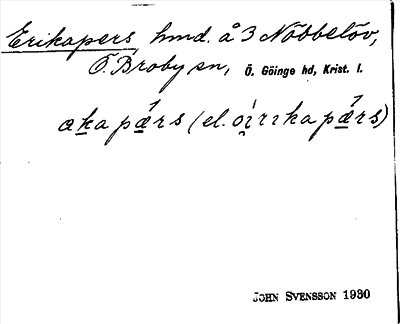 Erikapers, hmd. å 3 Nöbbelöv,
Ö. Broby sn, Ö. Göinge hd, Krist. l.
akapærs (el. oirıkapærs)
JOHN SVENSSON 1930